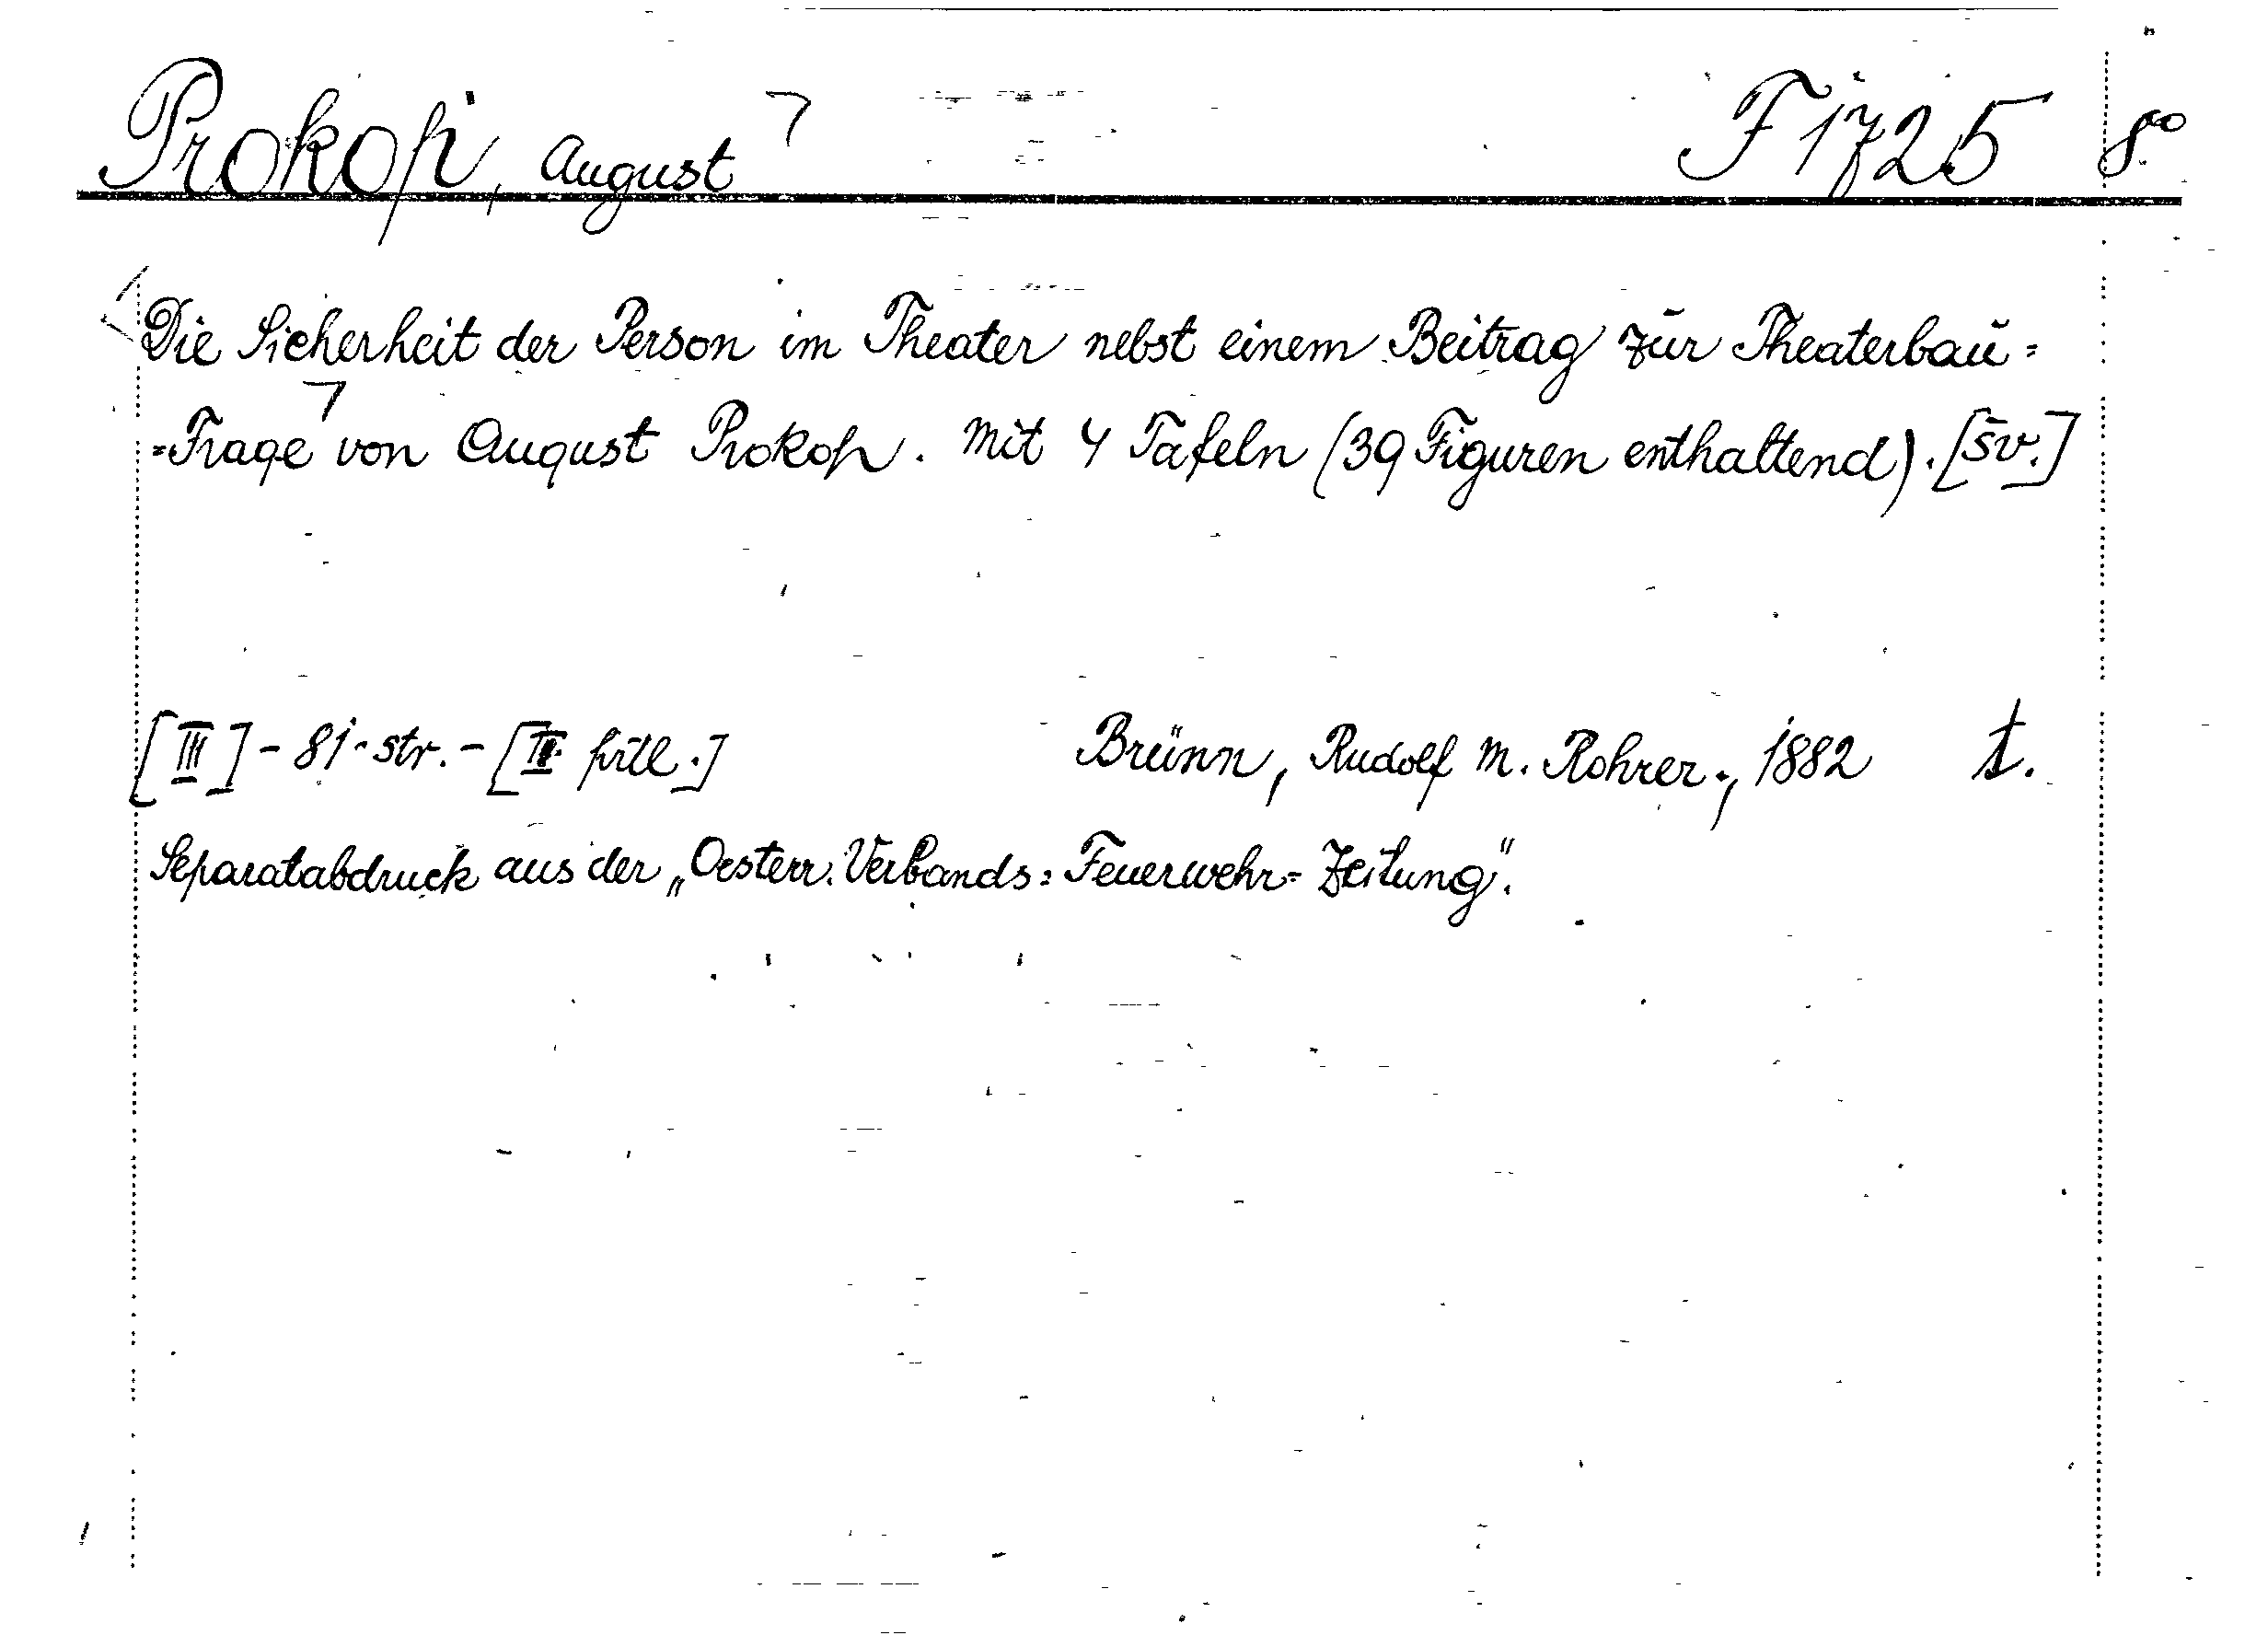 Prokop, August F 1725 8°
Die Sicherheit der Person im Theater nebst einem Beitrag zur Theaterbau=
=Frage von August Prokop. Mit 4 Tafeln (39 Figuren enthaltend). [Sv.]
[III] - 81 str. - [II příl.] Brünn, Rudolf M. Rohrer., 1882 t.
Separatabdruck aus der „Oesterr. Verbands=Feuerwehr=Zeitung".